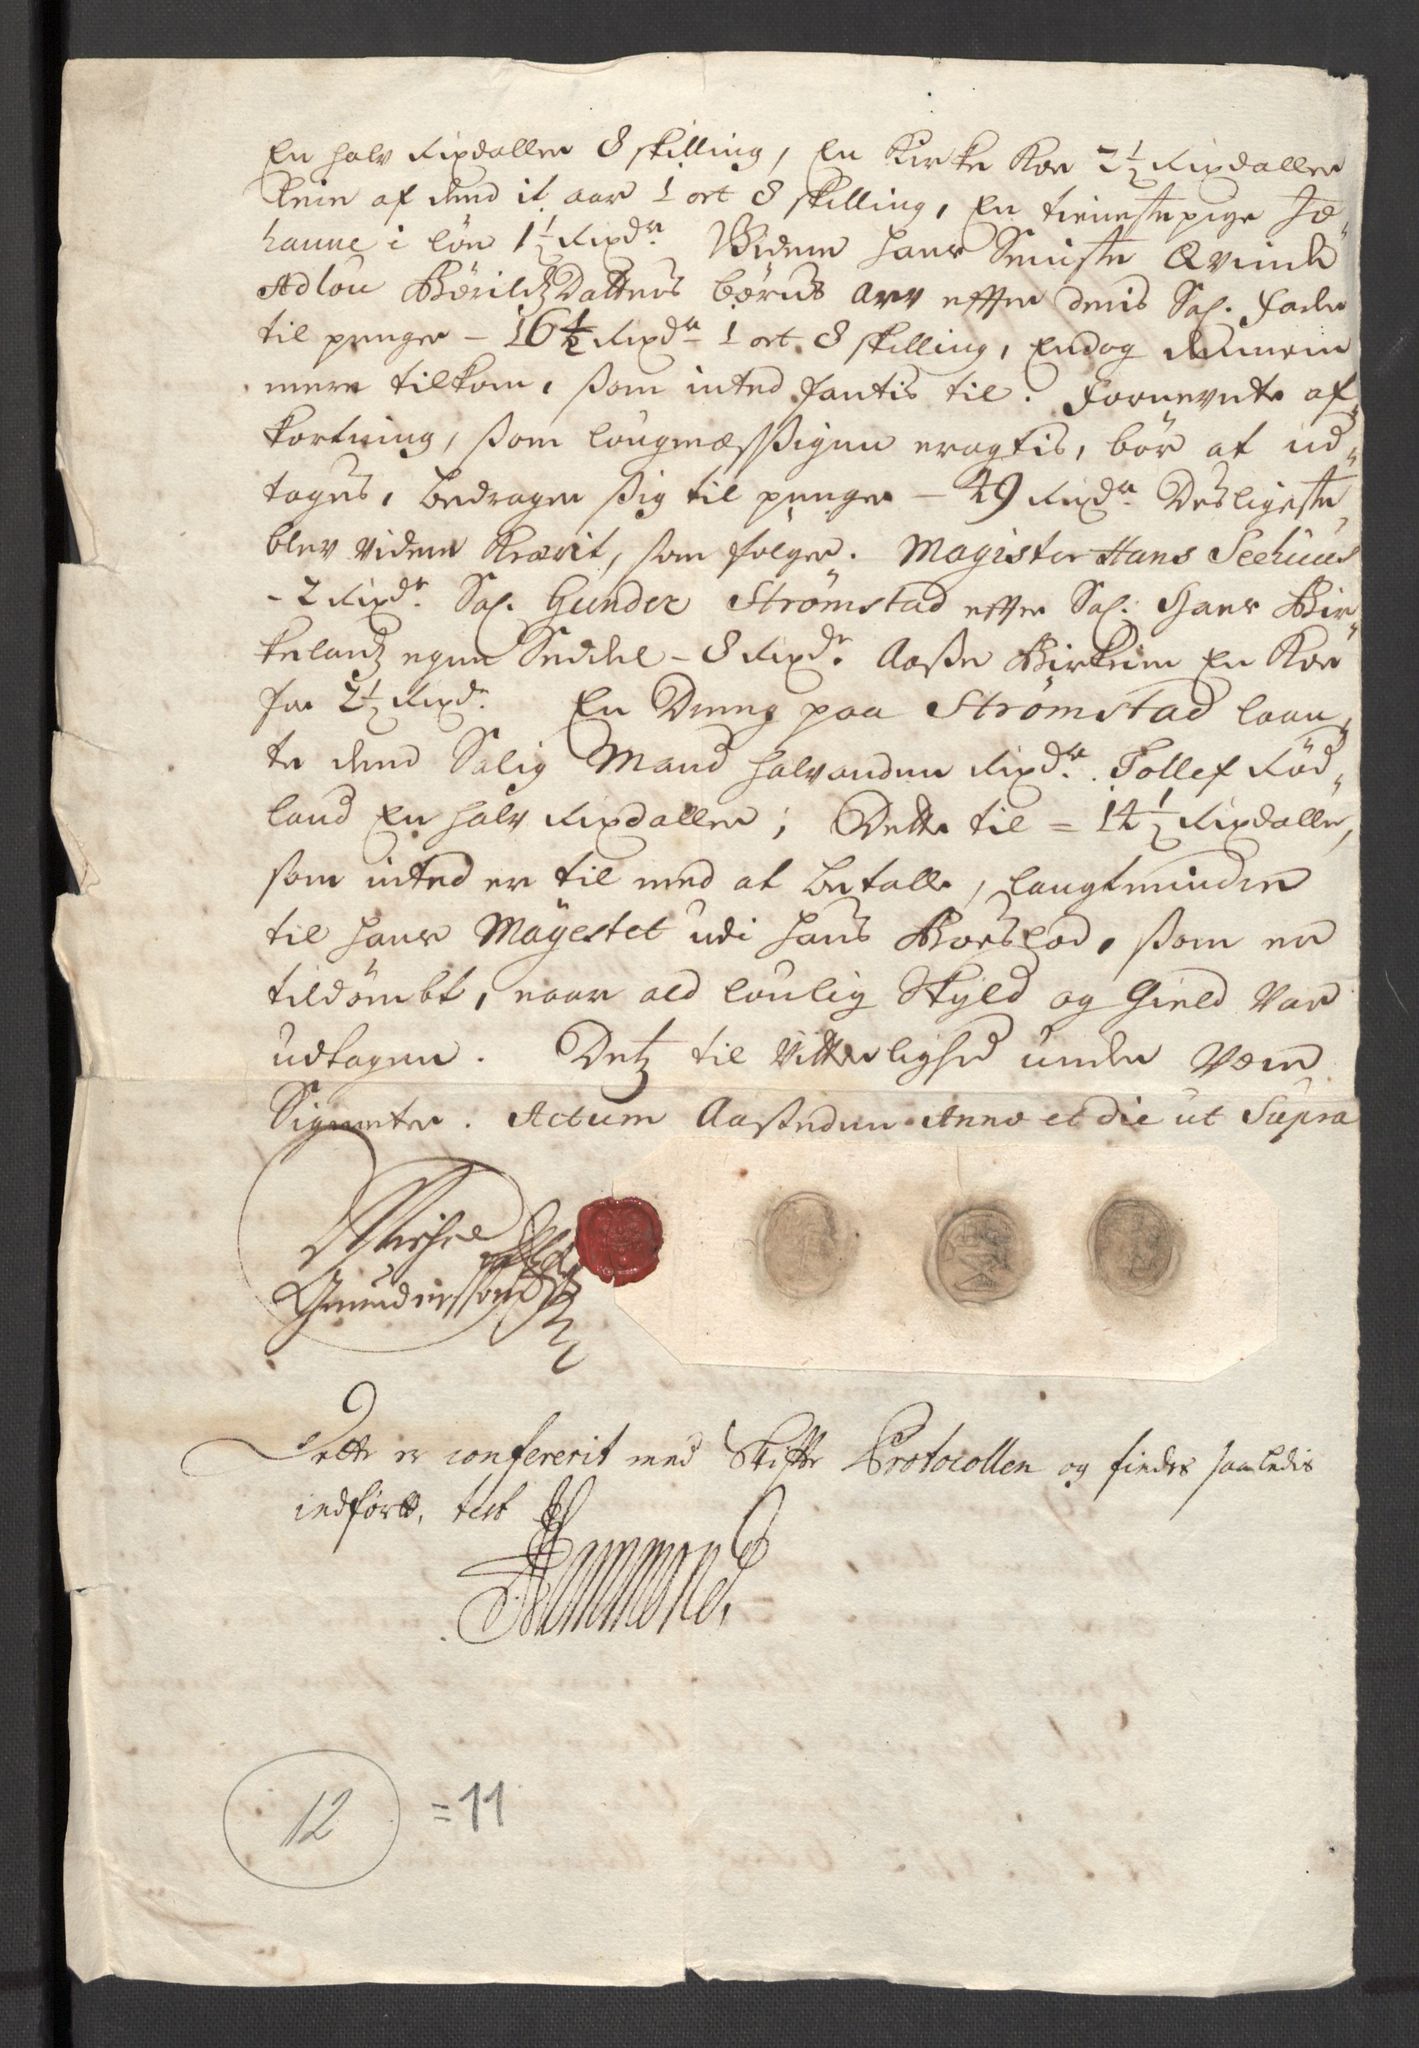 En halv Rixdaller 8 skilling, En Kirke Koe 2½ Rixdaller
Leie af dend it aar 1 ort 8 skilling, En tienestepige Jo-
hanne i løn 1½ Rixdr. Widere hans Seniste Qvinde
Adlou Børildz Datters børns Arv effter deris Sal. Fader
til penger - 16½ Rixdr 1 ort 8 skilling, Endog
mere tilkom, som inted fantis til. Fornevnte af-
kortning, som lougmæssigen eragtis, bør at ud-
tages, bedrager sig til penger - 49 Rixdr. Desligeste
blev videre Krævit, som følger. Magister Hans Seehuus
- 2 Rixdr. Sal. Gunder Strømstad effter Sal. Hans Bir-
kelandz egen Seddel - 8 Rixdr. Aasse Birkeim En Koe
for 2½ Rixdr. En Dreng paa Strømstad laan-
te dend Salig Mand halvanden Rixdr. Tollef Rød-
land En halv Rixdaller; Dette til = 14½ Rixdaller,
som inted er til med at betalle, langt mindre
til Hans Mäyestet udi hans Boeslod, som er
tildømbt, naar ald loulig Skyld og Gield var
udtagen. Detz til Vitterlighed under voris
Signeter. Actum Aastedene Anno et die ut Supra
Michel
Gunderssøn
Dette er confererit med Skifte Protocollen og findes saaledis
indført, test
Hammond.
12 = 11